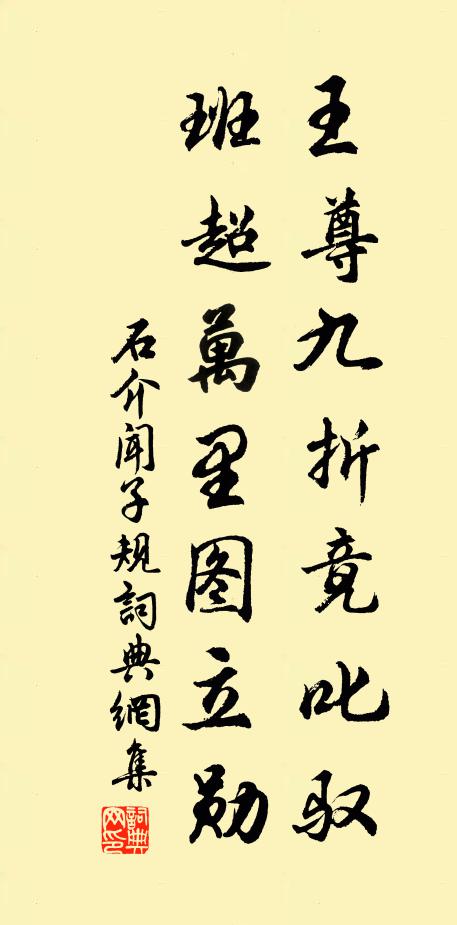 王尊九折竟叱驭
班超萬里图立勋
石介闻子規詞典網集
詞典网印